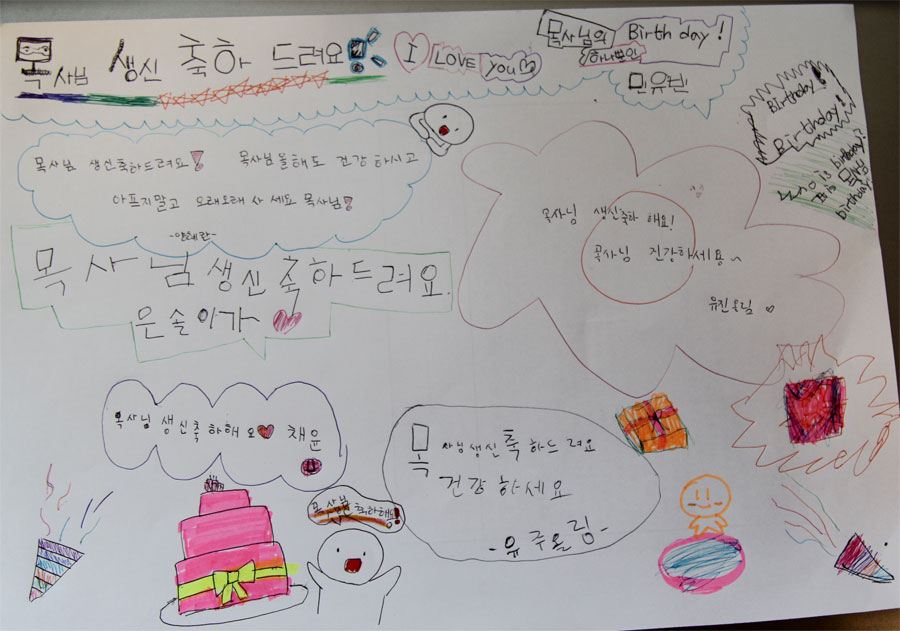 목사님 생신 축하 드려요!
I LOVE you
목사님의 Birth day!
하나뿐인
민유빈
Birthday!
Birthday!
Who is birthday?
It is 목사님
birthday.
목사님 생신축하드려요! 목사님올해도 건강하시고
아프지말고 오래오래 사세요 목사님!
목사님 생신축하드려요.
은솔이가
목사님 생신축하 해요!
목사님 건강하세용~
유진올림
목사님 생신축하해요 채윤
목사님생신축하드려요
건강하세요
-유주올림-
목사님 축하해용!